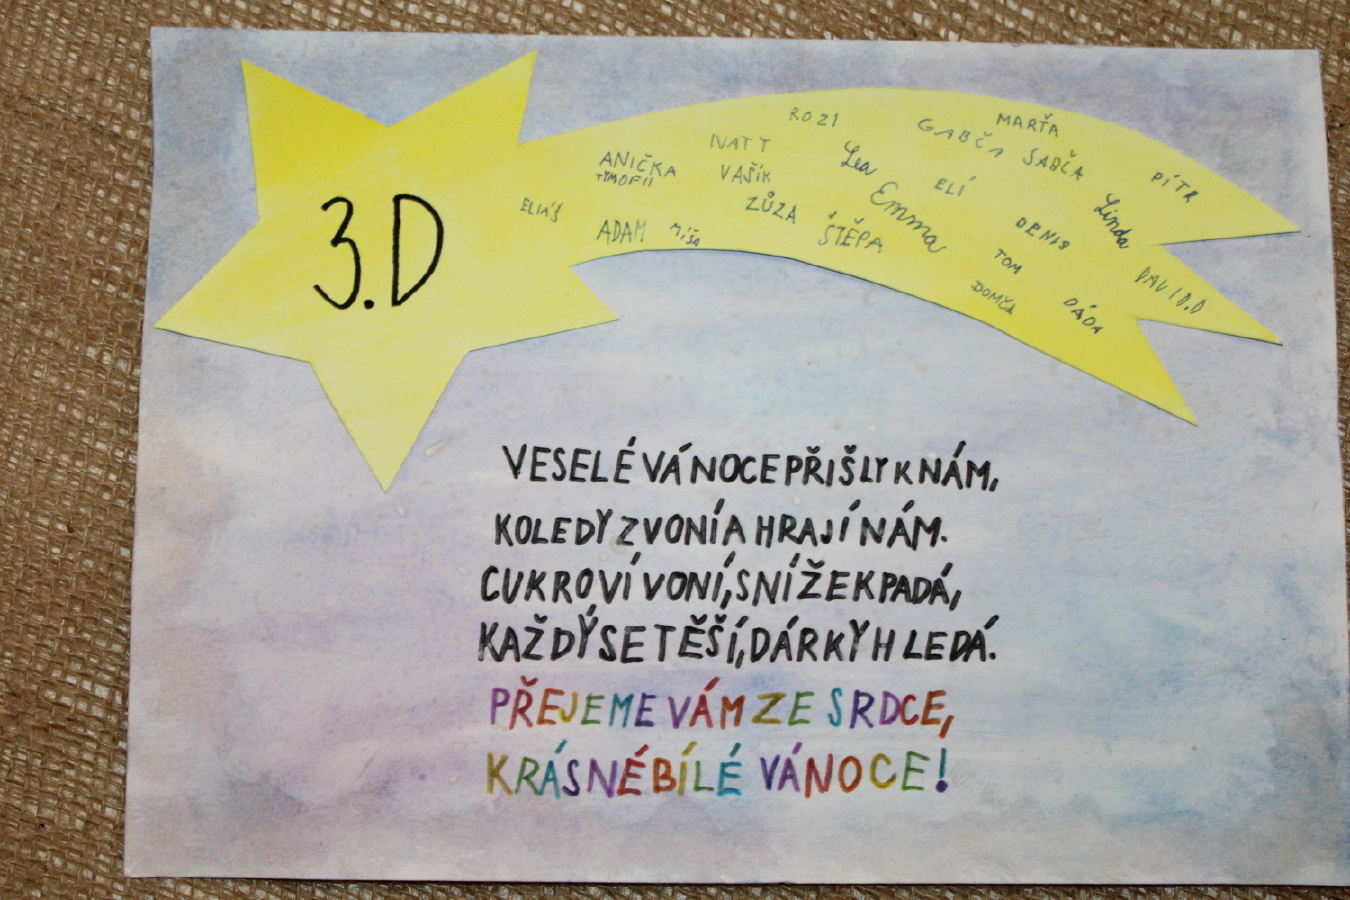 3.D
ROZI
MARŤA
GABČA
NATT
SABČA
ANIČKA
TYMOFII
VAŠÍK
Lea
ELÍ
PÍTR
ELIÁŠ
ZŮZA
Emma
Linda
ADAM
MÍŠA
ŠTĚPA
DENIS
TOM
DAVID.D
DOMČA
DÁDA
VESELÉ VÁNOCE PŘIŠLY K NÁM,
KOLEDY ZVONÍ A HRAJÍ NÁM.
CUKROVÍ VONÍ, SNÍŽEK PADÁ,
KAŽDÝ SE TĚŠÍ, DÁRKY HLEDÁ.
PŘEJEME VÁM ZE SRDCE,
KRÁSNÉ BÍLÉ VÁNOCE!